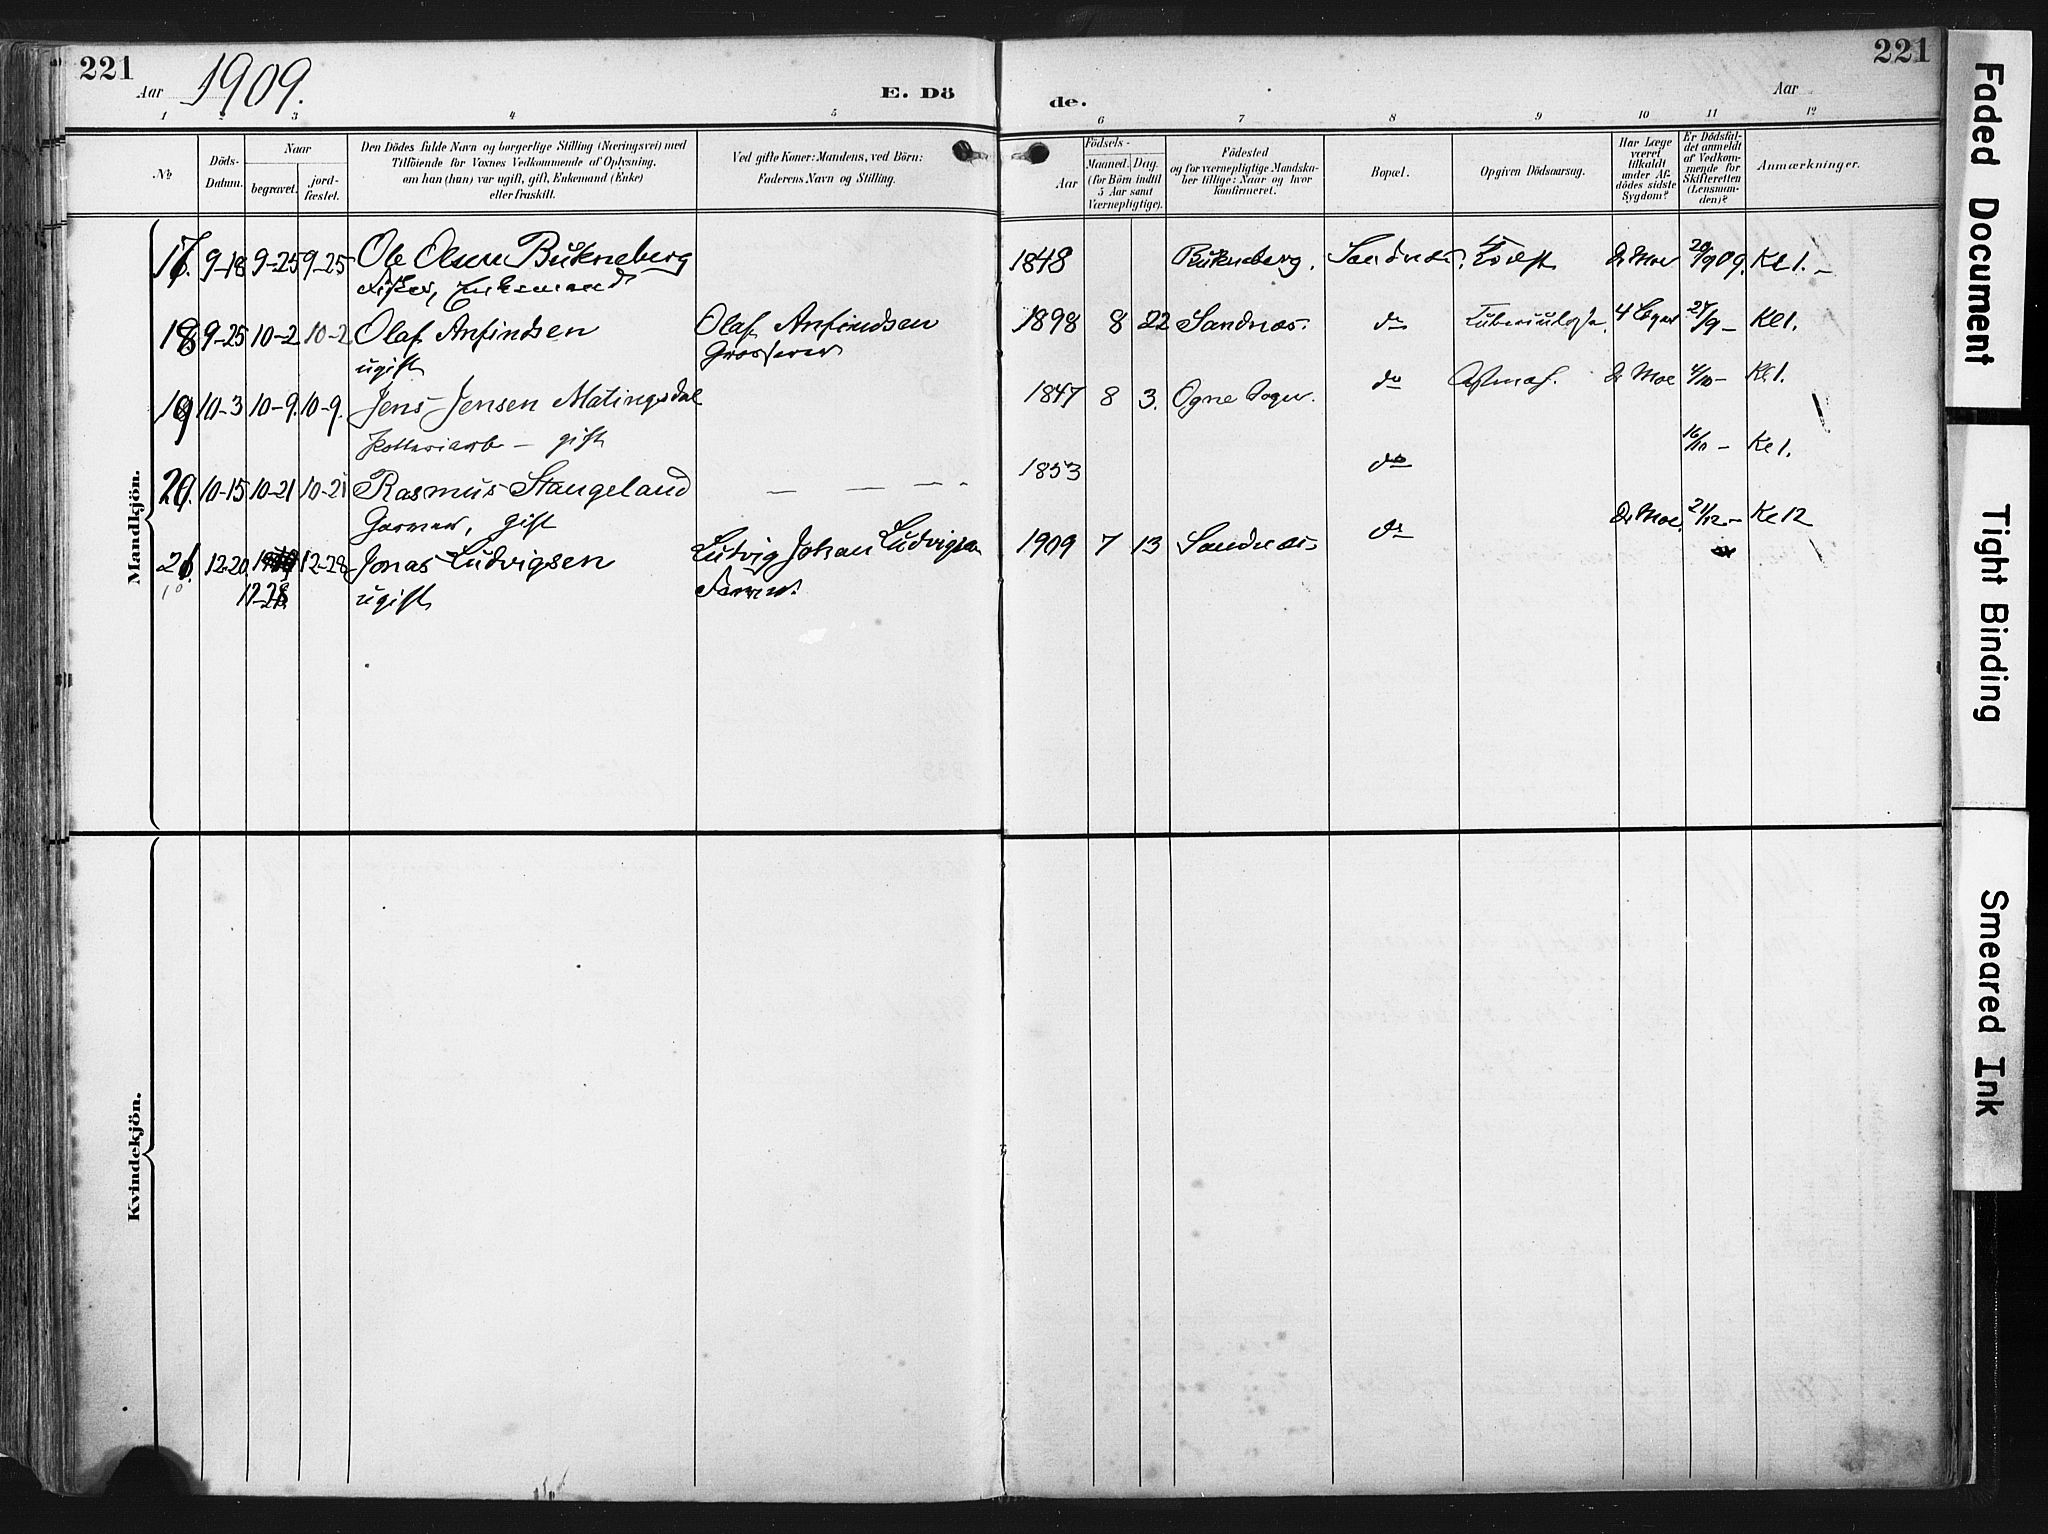 221
Aar 1909.
E. Dö
de.
Aar
221
1 2 3 4 5 6 7 8 9 10 11 12
№
Döds-Datum.
Naar
begravet.
jord-fæstet.
Den Dödes fulde Navn og borgerlige Stilling (Næringsvei) med
Tilföiende for Voxnes Vedkommende af Oplysning,
om han (hun) var ugift, gift, Enkemand (Enke)
eller fraskilt.
Ved gifte Koner: Mandens, ved Börn:
Faderens Navn og Stilling.
Födsels-
Aar
Maaned. Dag.
(for Börn indtil
5 Aar samt
Værnepligtige).
Födested
og for værnepligtige Mandska-
ber tillige: Naar og hvor
konfirmeret.
Bopæl.
Opgiven Dödsaarsag.
Har Læge
været
tilkaldt
under Af-
dödes sidste
Sygdom?
Er Dödsfal-
det anmeldt
af Vedkom-
mende for
Skifteretten
(Lensman-
den)?
Anmærkninger.
Mandkjön.
17. 9-18 9-25 9-25 Ole Olsen Bukneberg 1848 Bukneberg. Sandnæs. Dr Moe 20/9 09. Kl 1. –
Enkemand
18 9-25 10-2 10-2 Olaf Anfindsen Olaf Anfindsen 1898 8 22 Sandnæs. do Tuberkulose. 4 Læger 27/9 – Kl 1.
ugift Grosserer
19 10-3 10-9. 10-9. Jens Jensen Matingsdal 1847 8 3. Ogne Sogn. do Dr Moe 4/10 – Kl 1.
Potteriarb – gift
20. 10-15 10-21 10-21 Rasmus Stangeland — — – - 1853 do 16/10 – Kl 1.
Garver, gift
21. 12-20. 12-28 Jonas Ludvigsen Ludvig Johan Ludvigsen 1909 7 13 Sandnæs do Dr Moe. 21/12 – Kl 12
12-28 ugift
Kvindekjön.
Faded Document
Tight Binding
Smeared Ink